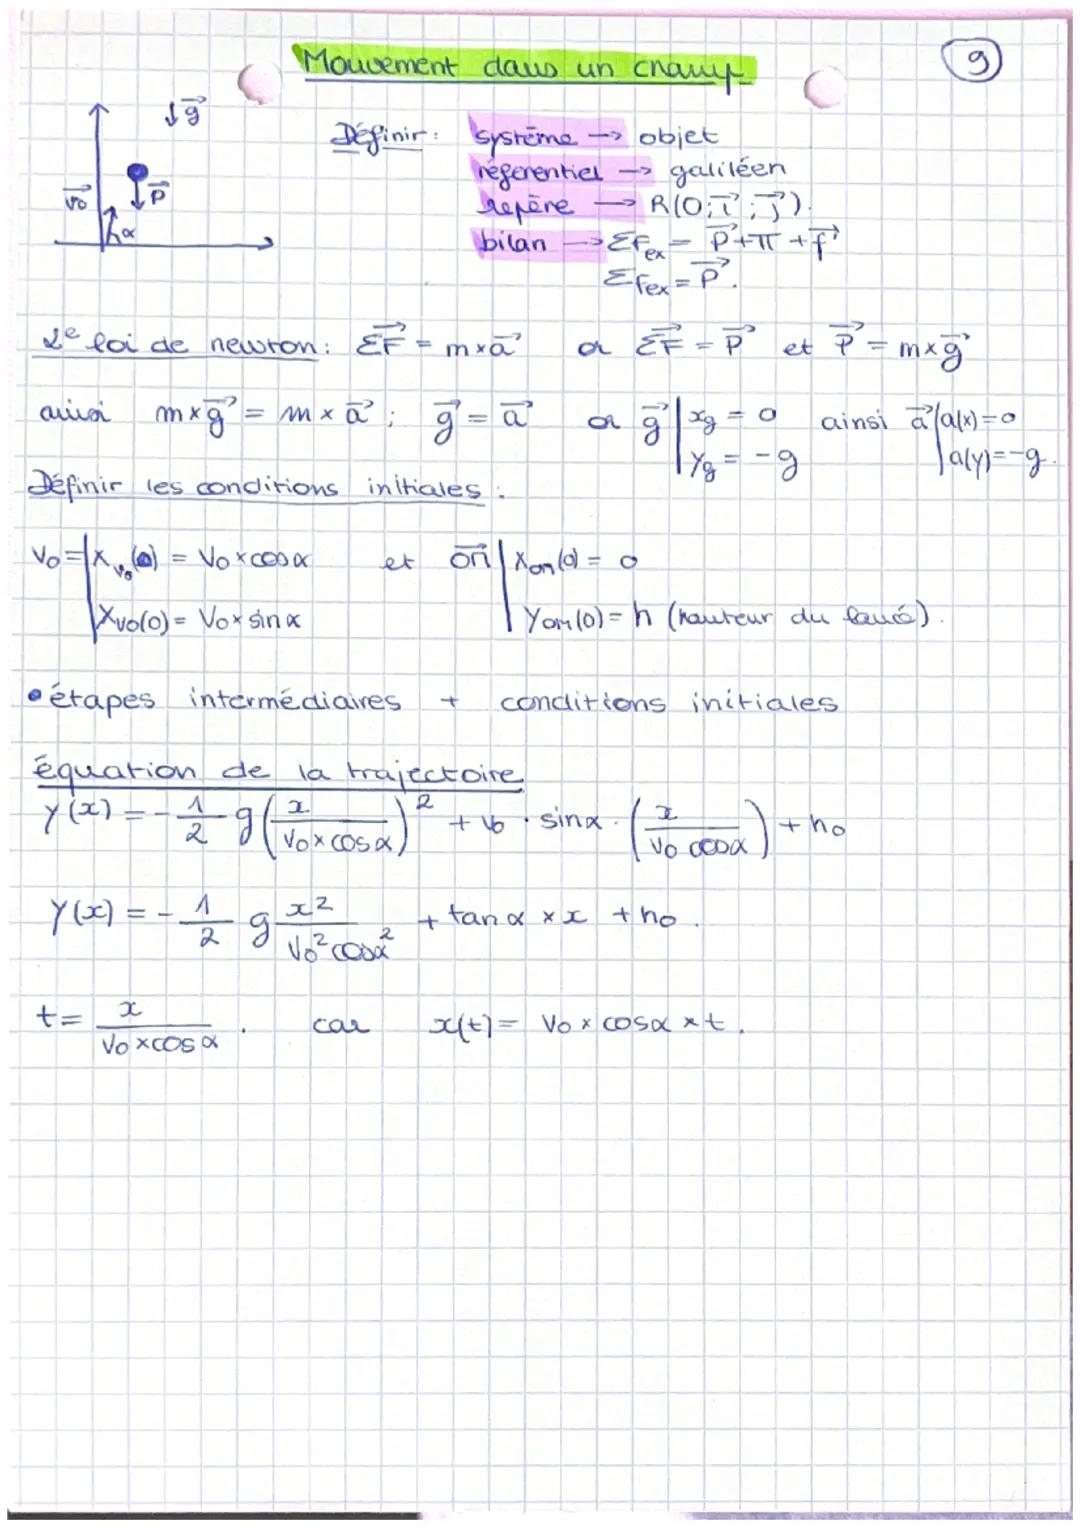 Mouvement dans un champ
9
↓g⃗
v⃗0
P⃗
α
Définir : système → objet
réferentiel → galiléen
repère → R(O; i⃗ ; j⃗).
bilan → ΣF⃗ex = P⃗ + π⃗ + f⃗
ΣFex = P⃗.
2e loi de newton : ΣF⃗ = m×a⃗ or ΣF⃗ = P⃗ et P⃗ = m×g⃗
ainsi m×g⃗ = m × a⃗ ; g⃗ = a⃗ or g⃗ | xg = 0 ainsi a⃗ | a(x) = 0
| yg = -g | a(y) = -g.
Définir les conditions initiales :
V0 = | Xv0(0) = V0 × cosα et OM⃗ | Xom(0) = 0
| Xv0(0) = V0 × sinα | YoM(0) = h (hauteur du lancé).
• étapes intermédiaires + conditions initiales
équation de la trajectoire
y(x) = - 1/2 g (x / (V0 × cosα))² + v0 · sinα · (x / (V0 cosα)) + h0
y(x) = - 1/2 g x² / (V0² cosα²) + tanα × x + h0.
t = x / (V0 × cosα). car x(t) = V0 × cosα × t.